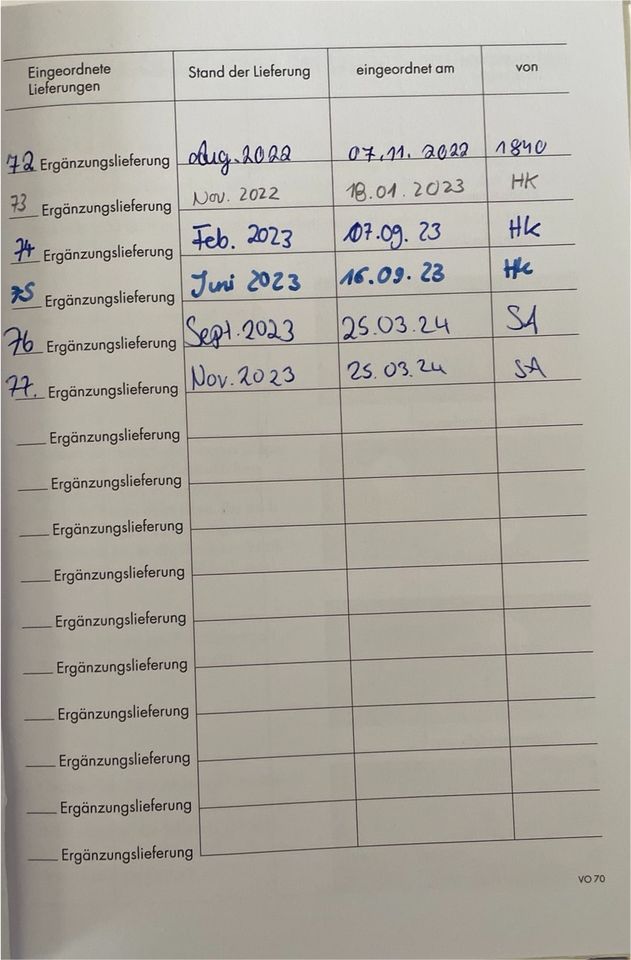 Eingeordnete Lieferungen Stand der Lieferung eingeordnet am von
72 Ergänzungslieferung Aug. 2022 07.11. 2022 1840
73 Ergänzungslieferung Nov. 2022 18.01.2023 HK
74 Ergänzungslieferung Feb. 2023 07.09. 23 Hk
75 Ergänzungslieferung Juni 2023 16.09. 23 Hk
76 Ergänzungslieferung Sept. 2023 25.03.24 SA
77. Ergänzungslieferung Nov. 2023 25.03.24 SA
Ergänzungslieferung
Ergänzungslieferung
Ergänzungslieferung
Ergänzungslieferung
Ergänzungslieferung
Ergänzungslieferung
Ergänzungslieferung
Ergänzungslieferung
Ergänzungslieferung
Ergänzungslieferung
VO 70